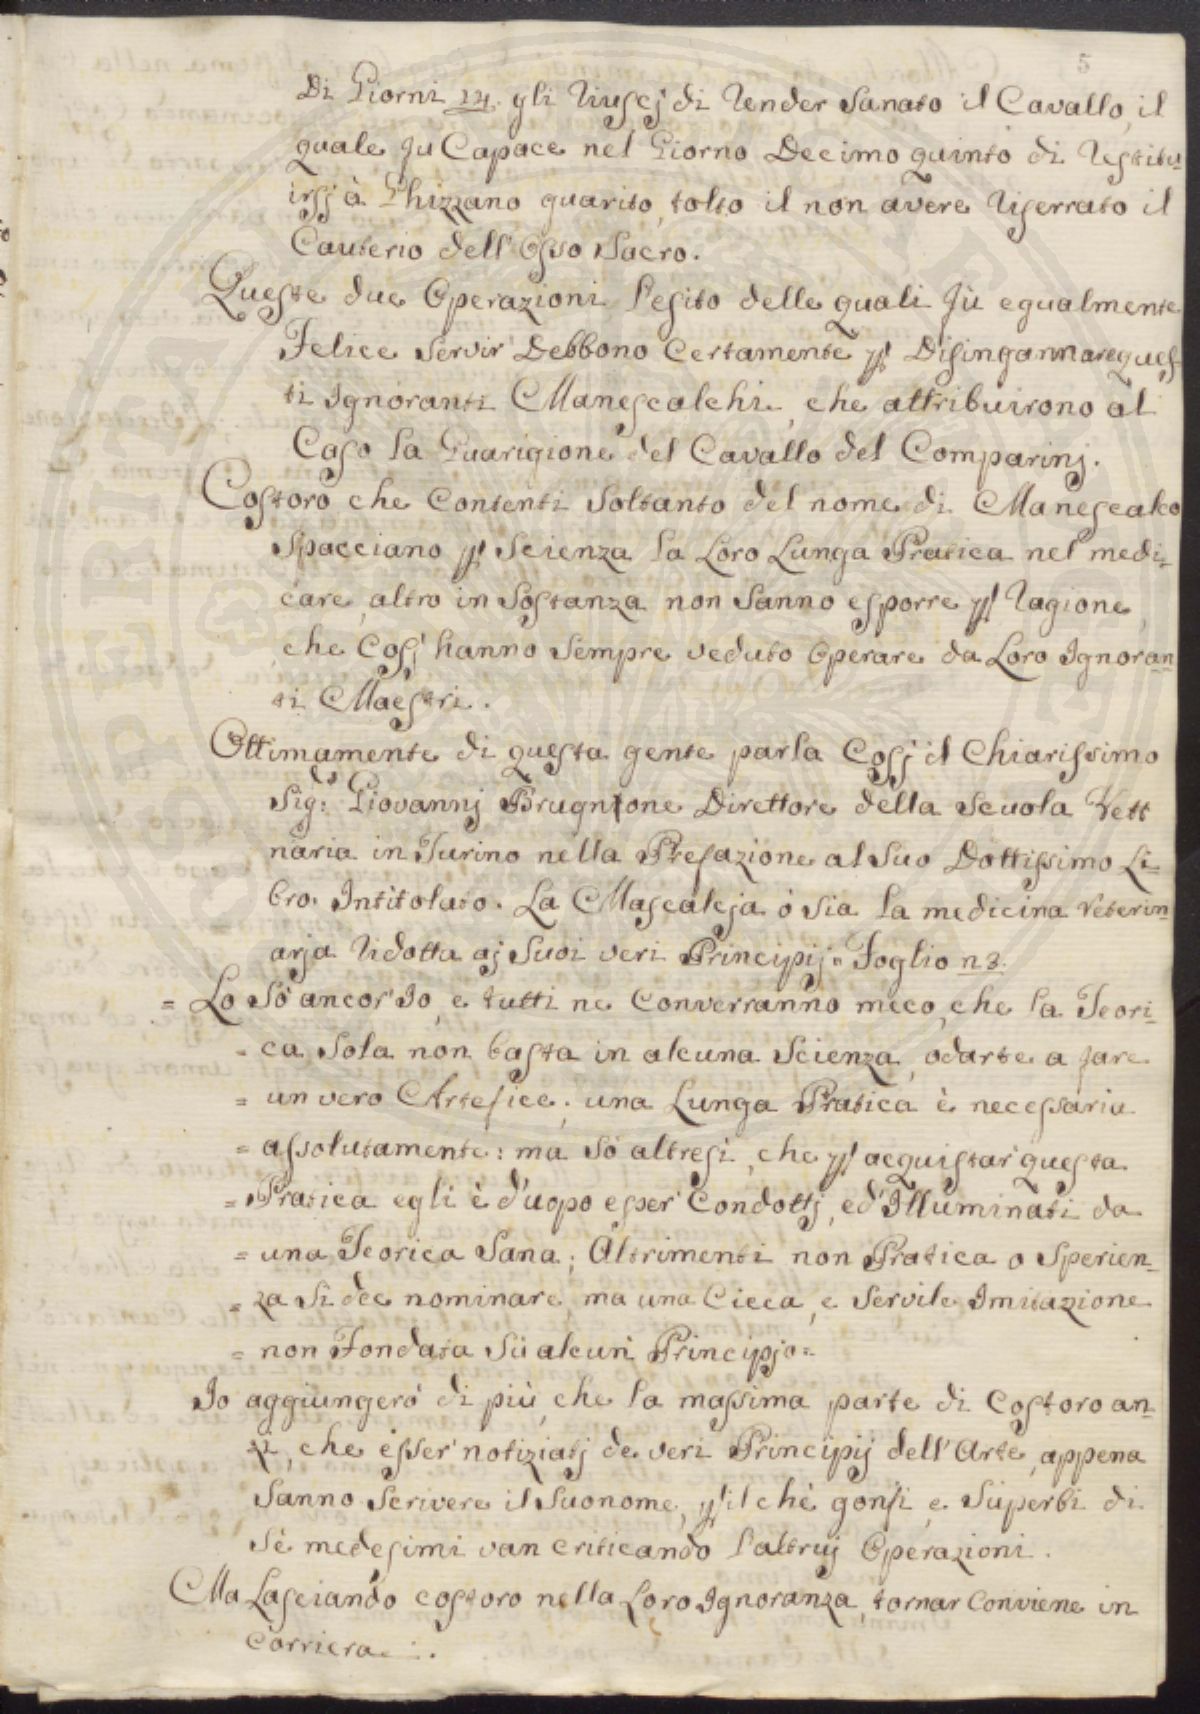 5
Di Giorni 14. gli Riuscj di Render Sanato il Cavallo, il
quale fu Capace nel Giorno Decimo quinto di Restitu-
irsj à Ghizzano guarito, tolto il non avere Riserrato il
Cauterio dell'Osso Sacro.
Queste due Operazioni l'esito delle quali fù egualmente
Felice servir Debbono Certamente p Disingannare ques-
ti Ignoranti Manescalchi, che attribuirono al
Caso la Guarigione del Cavallo del Comparinj.
Costoro che Contenti Soltanto del nome di Manescalco
Spacciano p Scienza la Loro Lunga Pratica nel medi-
care, altro in Sostanza non Sanno esporre p Ragione,
che Così hanno Sempre veduto Operare da Loro Ignoran-
ti Maestri.
Ottimamente di questa gente parla Cosj il Chiarissimo
Sig: Giovannj Brugnone Direttore della Scuola Vett
naria in Turino nella Prefazione al Suo Dottissimo Li-
bro. Intitolato. La Mascalcja ò sia la medicina Veterin-
arja Ridotta aj Suoi veri Principij" Foglio n 8.
= Lo Sò ancor Io, e tutti ne Converranno meco, che la Teori-
= ca Sola non basta in alcuna Scienza, odarte a fare
= un vero Artefice; una Lunga Pratica è necessaria
= assolutamente: mà Sò altresì, che p acquistar questa
= Pratica egli è d'uopo esser Condottj, ed'Illuminati da
= una Teorica Sana; Altrimenti non Pratica o Sperien-
= za Si dee nominare, ma una Cieca, e Servile Imitazione
= non Fondata Sù alcun Principjo=
Io aggiungerò di più, che la massima parte di Costoro an-
zi, che esser notiziatj de veri Principij dell'Arte, appena
Sanno Scrivere il Suonome, p il chè gonfi, e Superbi di
Sè medesimi van criticando l'altruj Operazioni.
Ma Lasciando costoro nella Loro Ignoranza, tornar Conviene in
Carriera.